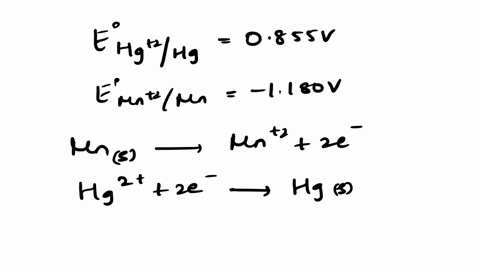 E°Hg⁺²/Hg = 0.855V
E°Mn⁺²/Mn = -1.180V
Mn(s) ⟶ Mn⁺² + 2e⁻
Hg²⁺ + 2e⁻ ⟶ Hg(s)